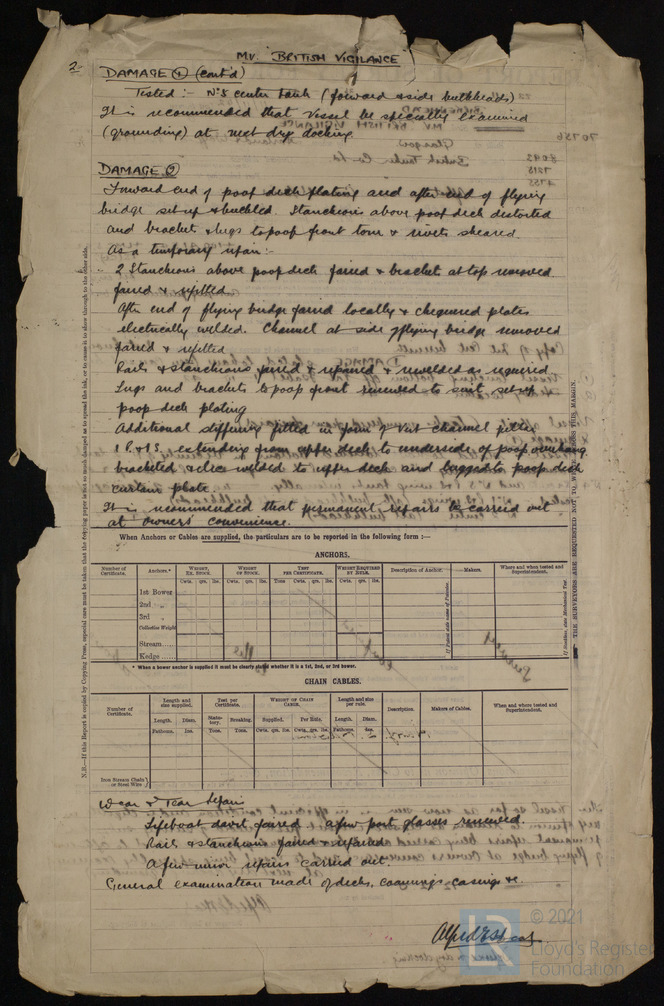 2.
MV. "BRITISH VIGILANCE"
DAMAGE ① (cont'd)
Tested :- No 5 center tank (forward & side bulkheads)
It is recommended that vessel be specially examined
(grounding) at next dry docking.
DAMAGE ②
Forward end of poop deck plating and after end of flying
bridge set up & buckled. Stancheons above poop deck distorted
and bracket & lugs to poop front torn & rivets sheared.
As a temporary repair:-
2 Stancheons above poop deck faired & bracket at top removed
faired & refitted.
After end of flying bridge faired locally & chequered plates
electrically welded. Channel at side of flying bridge removed
faired & refitted
Rails & stancheons faired & repaired & rewelded as required
Lugs and brackets to poop front renewed to suit set up
poop deck plating
Additional stiffening fitted in form of vert channel
1 P. & 1 S. extending from upper deck to underside of poop overhang
bracketed & elec welded to upper deck and lugged to poop deck
curtain plate.
It is recommended that permanent repairs be carried out
at owners' convenience.
When Anchors or Cables are supplied, the particulars are to be reported in the following form :—
ANCHORS.
Number of Certificate. Anchors.* WEIGHT, EX. STOCK. WEIGHT OF STOCK. TEST PER CERTIFICATE. WEIGHT REQUIRED BY RULE. Description of Anchor. Makers. Where and when tested and Superintendent.
Cwts. qrs. lbs. Cwts. qrs. lbs. Tons. Cwts. qrs. lbs. Cwts. qrs. lbs.
1st Bower
2nd "
3rd "
Collective Weight
Stream
Kedge
* When a bower anchor is supplied it must be clearly stated whether it is a 1st, 2nd, or 3rd bower.
CHAIN CABLES.
Number of Certificate. Length and size supplied. Test per Certificate. WEIGHT OF CHAIN CABLE. Length and size per rule. Description. Makers of Cables. When and where tested and Superintendent.
Length. Diam. Statutory. Breaking. Supplied. Per Rule. Length. Diam.
Fathoms. Ins. Tons. Tons. Cwts. qrs. lbs. Cwts. qrs. lbs. Fathoms. Ins.
Iron Stream Chain or Steel Wire
Wear & Tear Repair
Lifeboat davit faired. a few port glasses renewed.
Rails & stancheons faired & repaired
A few minor repairs carried out.
General examination made of decks, coamings casings &c.
THE SURVEYORS ARE REQUESTED NOT TO WRITE ACROSS THE MARGIN.
© 2021
Lloyd's Register
Foundation